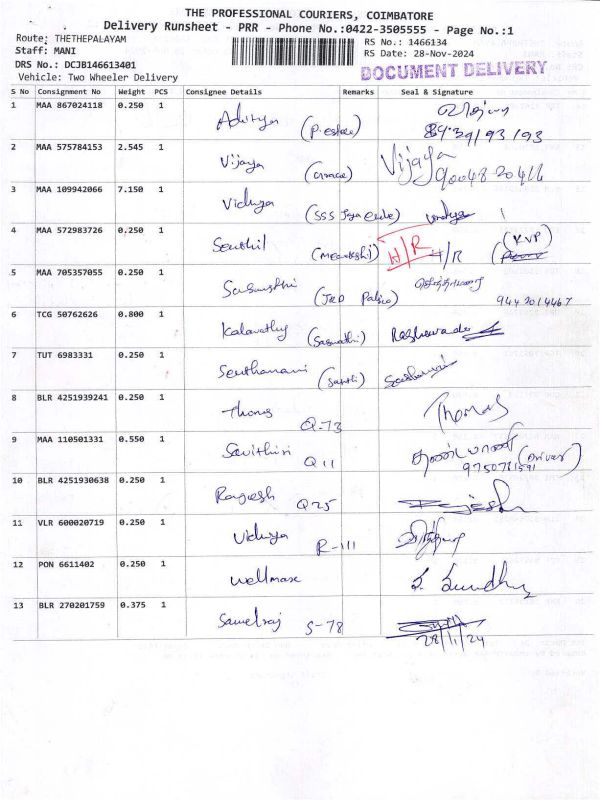 THE PROFESSIONAL COURIERS, COIMBATORE
Delivery Runsheet - PRR - Phone No.:0422-3505555 - Page No.:1
Route: THETHEPALAYAM RS No.: 1466134
Staff: MANI RS Date: 28-Nov-2024
DRS No.: DCJB146613401 DOCUMENT DELIVERY
Vehicle: Two Wheeler Delivery
S No Consignment No Weight PCS Consignee Details Remarks Seal & Signature
1 MAA 867024118 0.250 1 Aditya
89391/93/93
2 MAA 575784153 2.545 1 Vijaya Vijaya
90048 20416
3 MAA 109942066 7.150 1 Vidhya
4 MAA 572983726 0.250 1 Senthil H/R H/R (KVP)
5 MAA 705357055 0.250 1
9442014467
6 TCG 50762626 0.800 1 Kalavathy
7 TUT 6983331 0.250 1 Senthamani
8 BLR 4251939241 0.250 1 Thomas Q-73 Thomas
9 MAA 110501331 0.550 1 Savithiri Q11 (Driver)
9750781591
10 BLR 4251930638 0.250 1 Rajesh Q25 Rajesh
11 VLR 600020719 0.250 1 Vidhya R-111
12 PON 6611402 0.250 1 Wellmax
13 BLR 270201759 0.375 1 Samelraj S-78
28/11/24